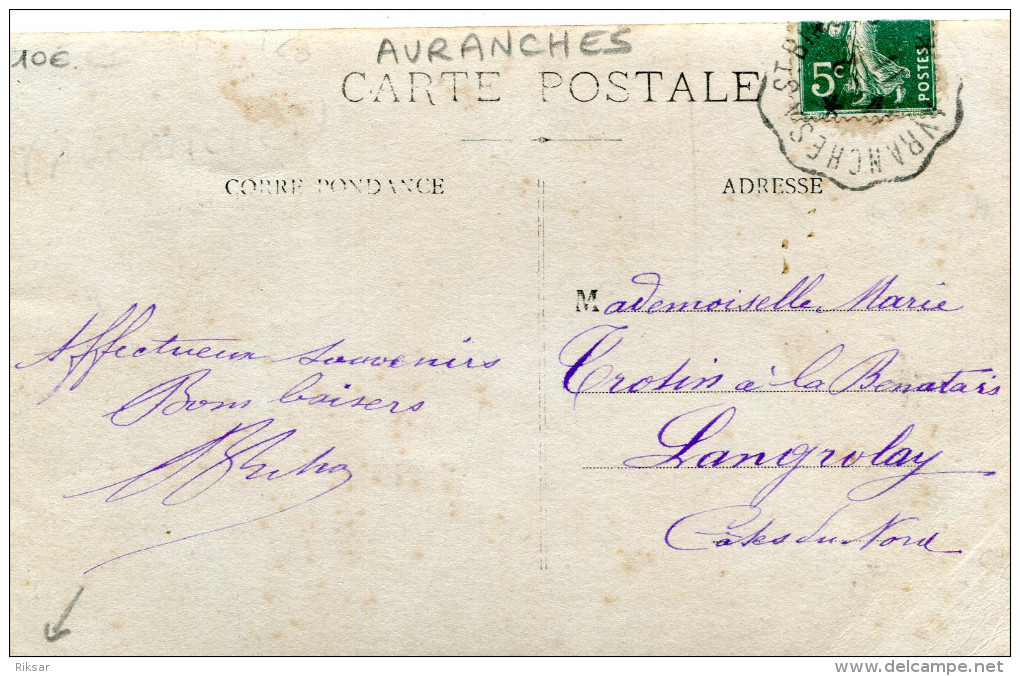 10€
AVRANCHES
CARTE POSTALE
5c
POSTES
AVRANCHES A ST B
CORRE PONDANCE
ADRESSE
Affectueux souvenirs
Bons baisers
Mademoiselle Marie
Trotin à la Benatais
Langrolay
Côtes du Nord
Riksar
www.delcampe.net